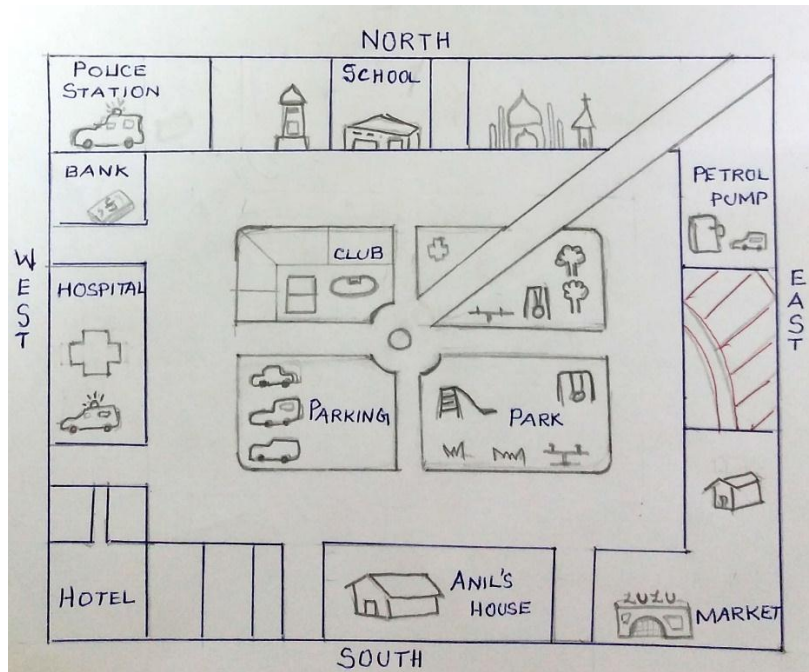 NORTH
POLICE
STATION
SCHOOL
BANK
$
PETROL
PUMP
CLUB
WEST
HOSPITAL
EAST
PARKING
PARK
HOTEL
ANIL'S
HOUSE
LULU
MARKET
SOUTH